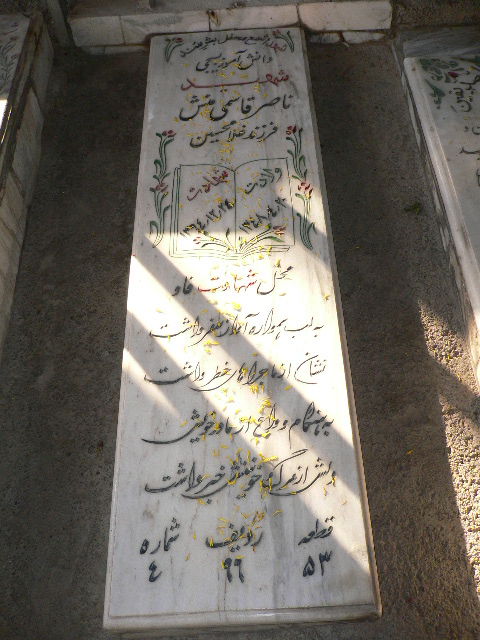 دانش آموز بسیجی
شهید
ناصر قاسمی منش
فرزند غلامحسین
ولادت شهادت
محل شهادت فاو
به لب همواره آواز ظفر داشت
نشان از ماجراهای خطر داشت
به هنگام وداع از مادر خویش
دلش از مرگ خونینش خبر داشت
قطعه ردیف شماره
۵۳ ۹۶ ۴